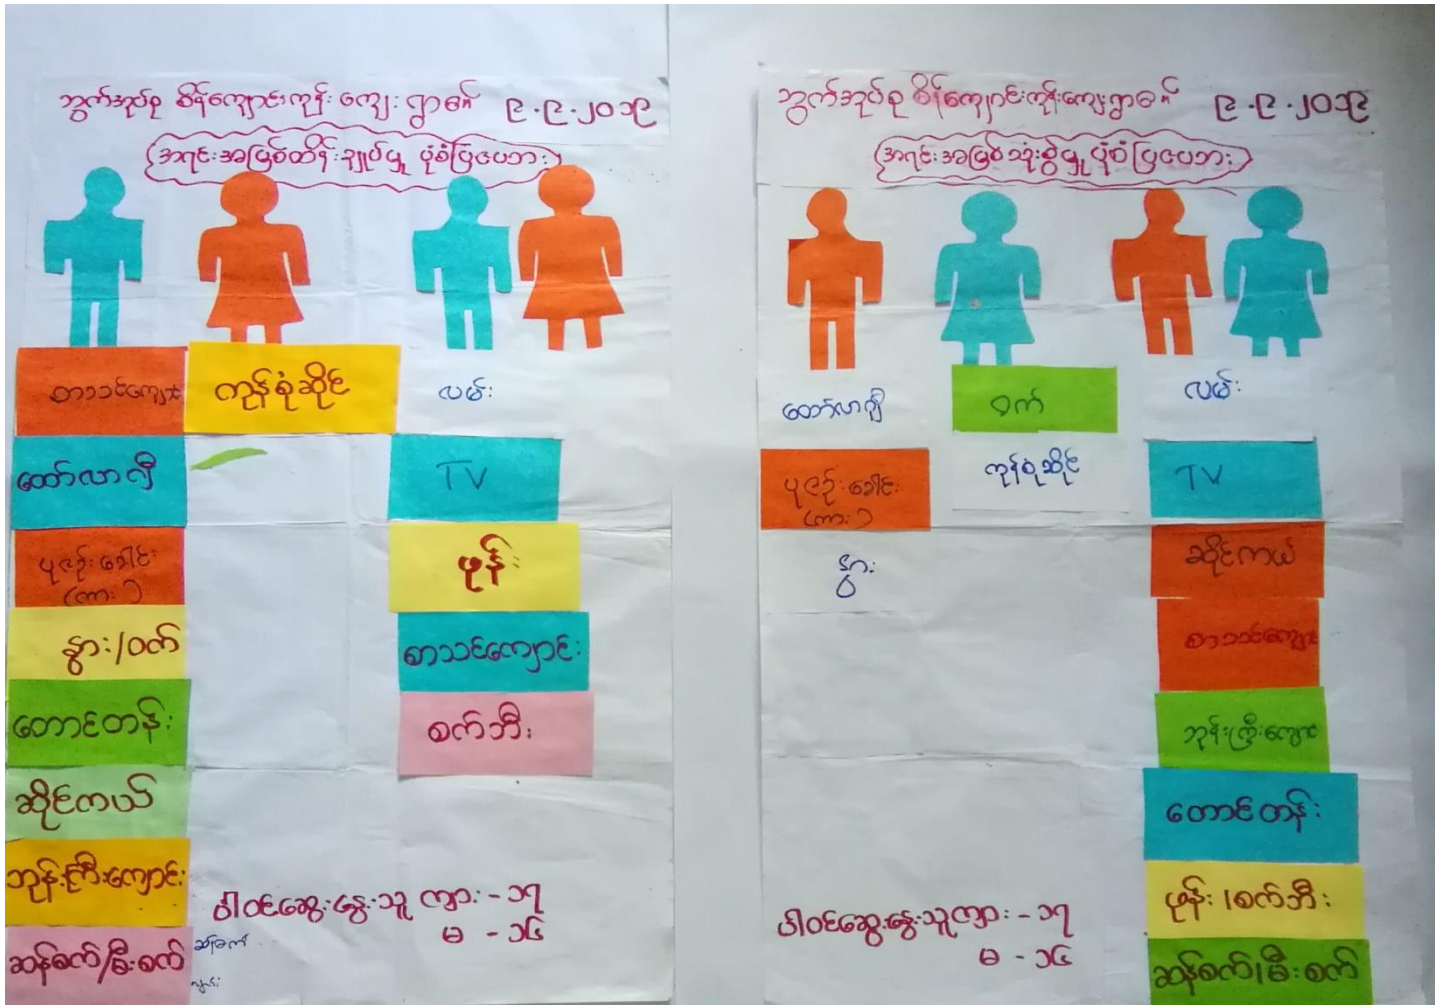 ဘွက်အုပ်စု စိန်ကျောင်းကုန်း ကျေးရွာ ၉.၉.၂၀၁၉
(အရင်းအမြစ်ထိန်းချုပ်မှု ပုံစံပြဇယား)
စာသင်ကျောင်း
ကုန်စုံဆိုင်
လမ်း
ထော်လာဂျီ
TV
ပုဇဉ်းခေါင်း
(ကား)
ဖုန်း
နွား/ဝက်
စာသင်ကျောင်း
တောင်တန်း
စက်ဘီး
ဆိုင်ကယ်
ဘုန်းကြီးကျောင်း
ဆန်စက်/မီးစက်
ပါဝင်ဆွေးနွေးသူ ကျား - ၁၇
မ - ၁၆
ဘွက်အုပ်စု စိန်ကျောင်းကုန်းကျေးရွာ ၉.၉.၂၀၁၉
(အရင်းအမြစ်သုံးစွဲမှု ပုံစံပြဇယား)
ထော်လာဂျီ
ဝက်
လမ်း
ပုဇဉ်းခေါင်း
(ကား)
ကုန်စုံဆိုင်
TV
နွား
ဆိုင်ကယ်
စာသင်ကျောင်း
ဘုန်းကြီးကျောင်း
တောင်တန်း
ဖုန်း/စက်ဘီး
ဆန်စက်/မီးစက်
ပါဝင်ဆွေးနွေးသူကျား - ၁၇
မ - ၁၆